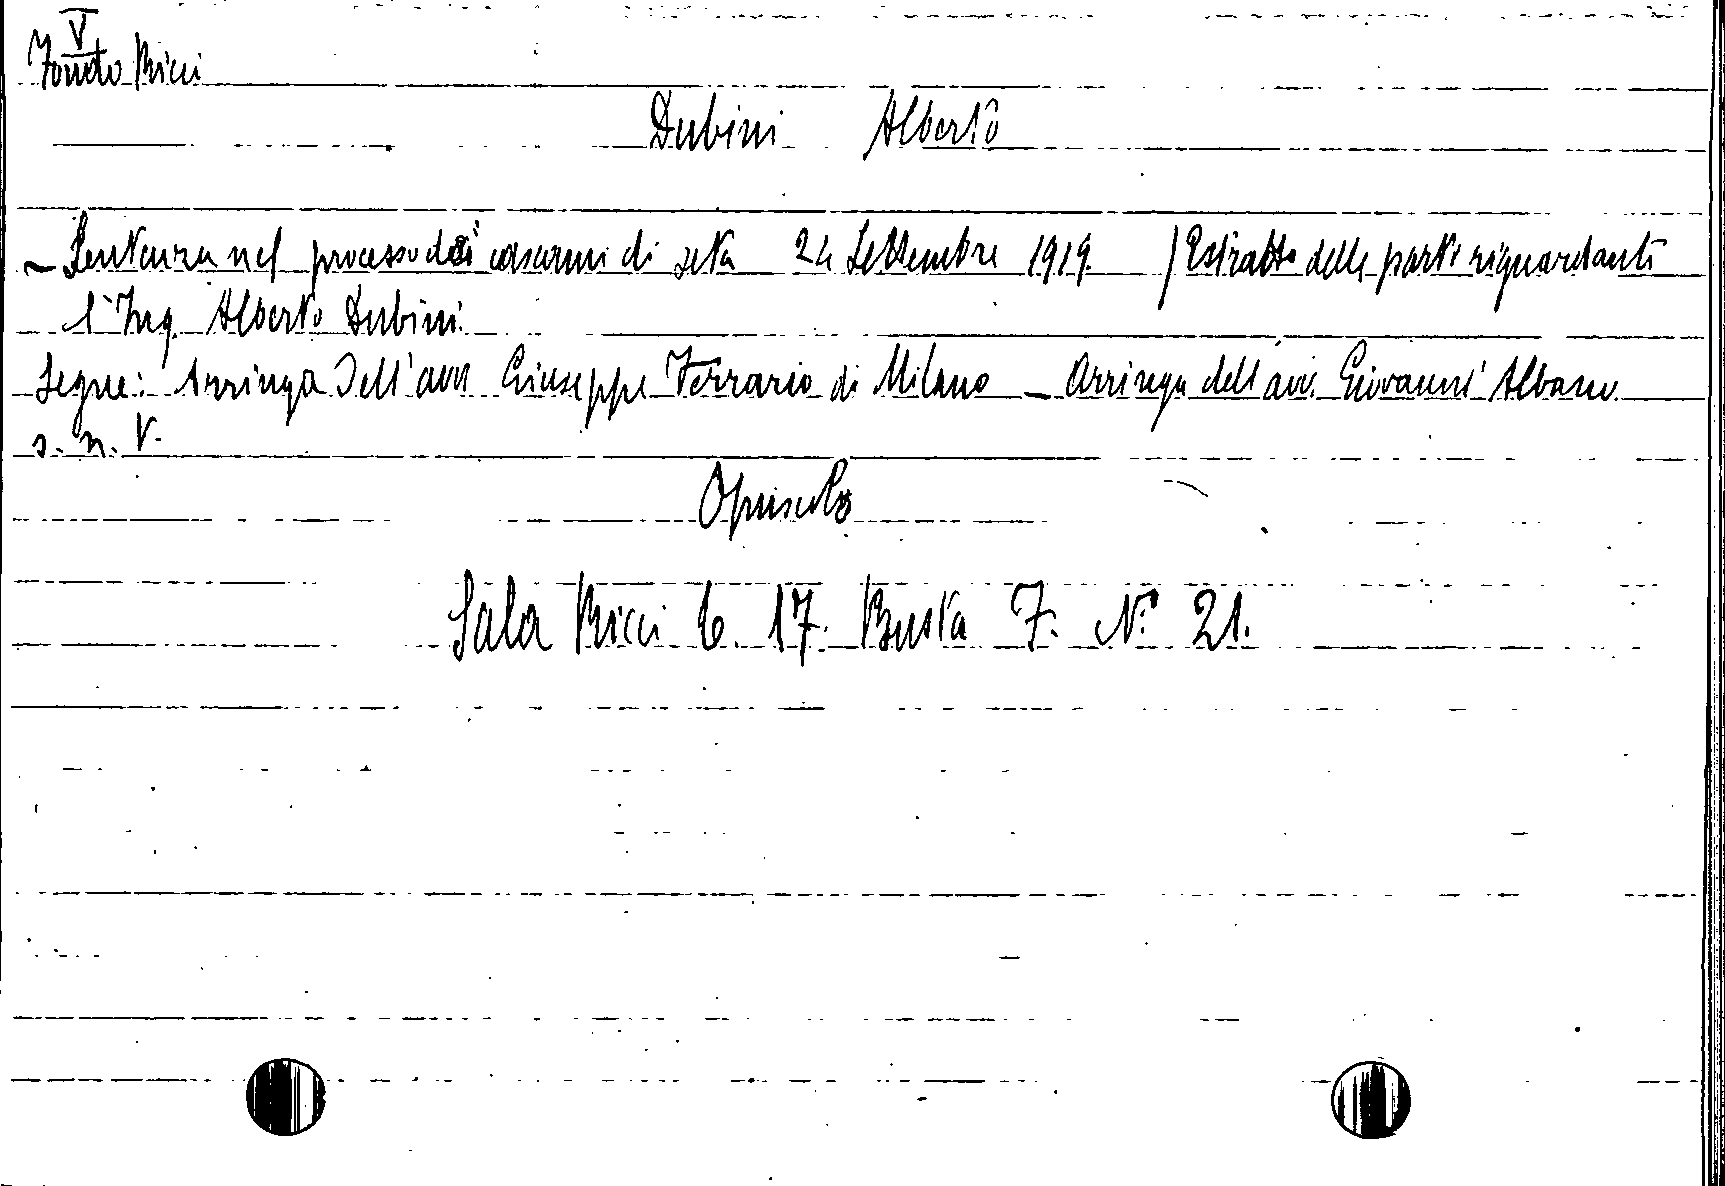 V
Fondo Ricci
Dubini Alberto
- Sentenza nel processo dei cascami di seta 24 Settembre 1919. / Estratto delle parti riguardanti
l'Ing. Alberto Dubini.
Segue: Arringa dell'avv. Giuseppe Ferrario di Milano - Arringa dell'avv. Giovanni Albano
s. n. t.
Opuscolo
Sala Ricci 6. 17. Busta 7. N° 21.